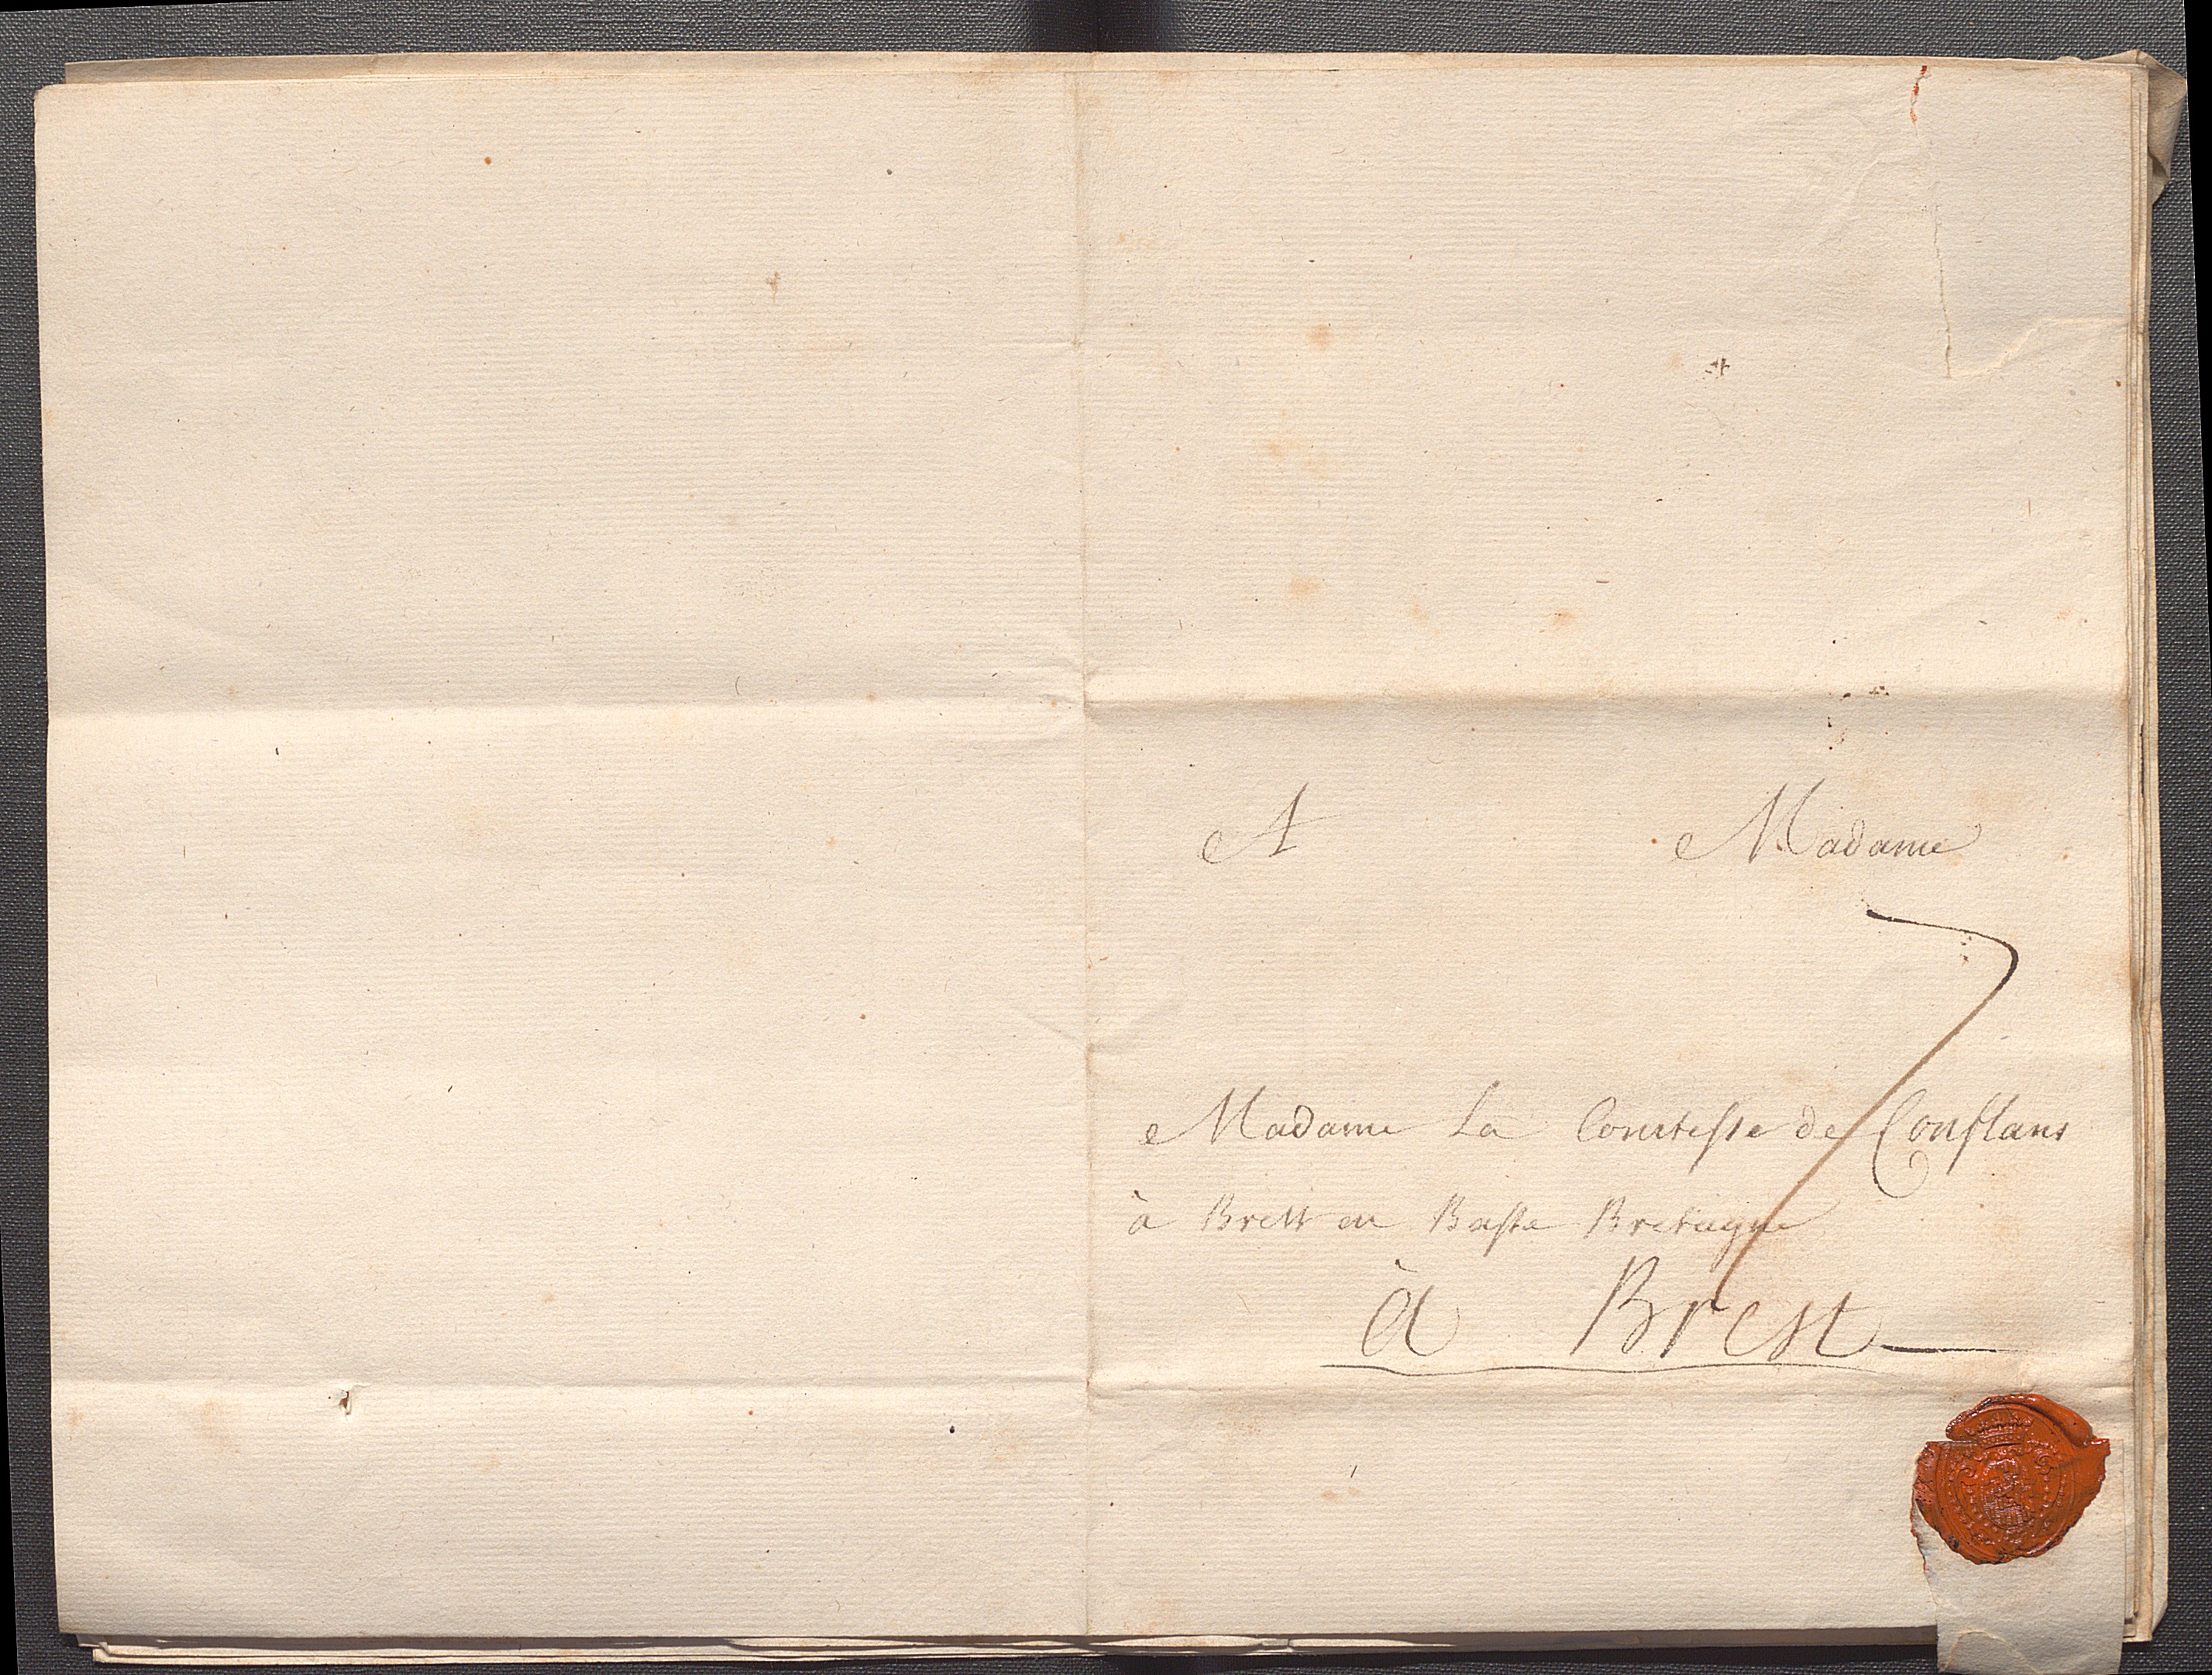 A Madame
7
Madame La Comtesse de Conflans
à Brest en Basse Bretagne
à Brest